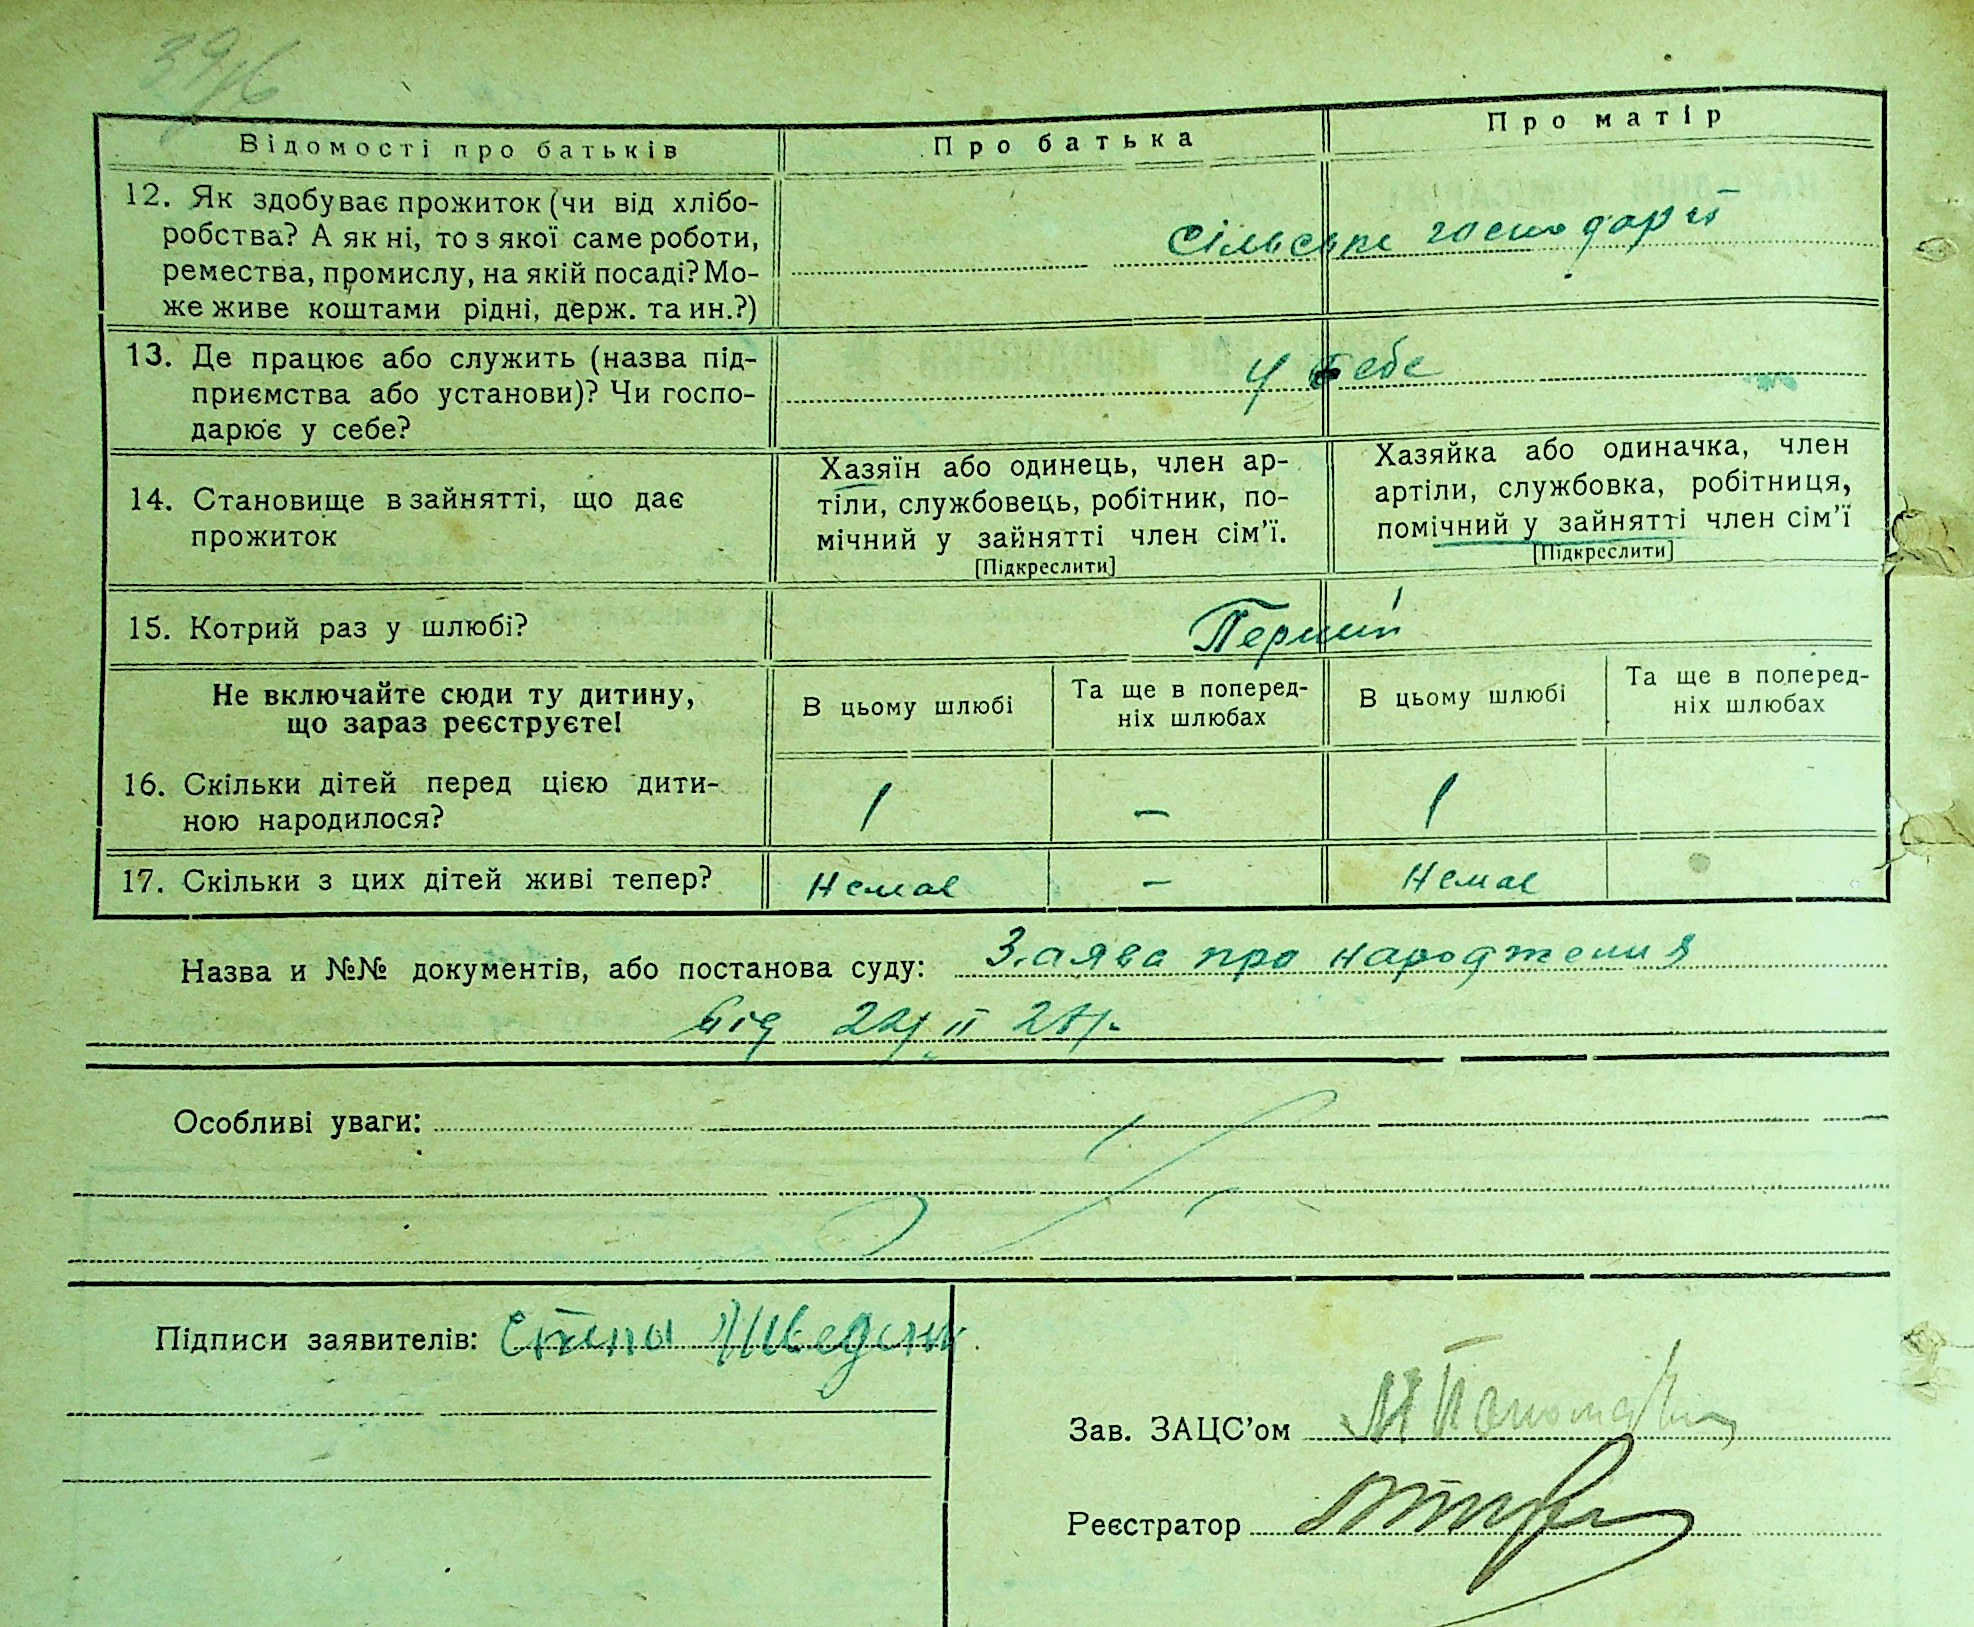 Відомості про батьків Про батька Про матір
12. Як здобуває прожиток (чи від хлібо-
робства? А як ні, то з якої саме роботи,
ремества, промислу, на якій посаді? Мо-
же живе коштами рідні, держ. та ин.?)
сільське господарст
13. Де працює або служить (назва під-
приємства або установи)? Чи госпо-
дарює у себе?
у себе
14. Становище в зайнятті, що дає
прожиток
Хазяїн або одинець, член ар-
тіли, службовець, робітник, по-
мічний у зайнятті член сім'ї.
[Підкреслити]
Хазяйка або одиначка, член
артіли, службовка, робітниця,
помічний у зайнятті член сім'ї
[Підкреслити]
15. Котрий раз у шлюбі? Перший
Не включайте сюди ту дитину,
що зараз реєструєте!
В цьому шлюбі
Та ще в поперед-
ніх шлюбах
В цьому шлюбі
Та ще в поперед-
ніх шлюбах
16. Скільки дітей перед цією дити-
ною народилося?
1 — 1
17. Скільки з цих дітей живі тепер? Немає — Немає
Назва и №№ документів, або постанова суду: Заява про народження
від 22/II 28 р.
Особливі уваги:
Підписи заявителів:
Зав. ЗАЦС'ом
Реєстратор